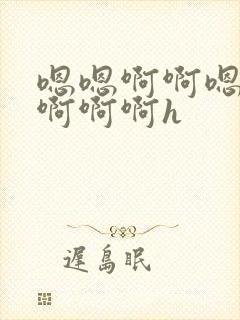 嗯嗯啊啊嗯
啊啊啊h
遲島眠